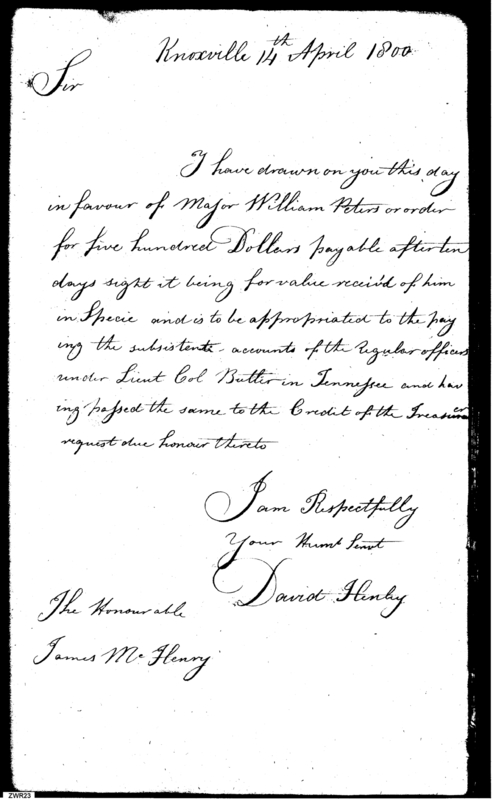 Knoxville 14th April 1800
Sir
I have drawn on you this day
in favour of Major William Peters or order
for five hundred Dollars payable after ten
days sight it being for value receiv'd of him
in Specie and is to be appropriated to the pay
ing the subsistents accounts of the regular officers
under Lieut Col Butler in Tennessee and hav
ing passed the same to the Credit of the Treasurer
request due honour thereto
I am Respectfully
Your Humt Servt
David Henley
The Honourable
James McHenry
ZWR23